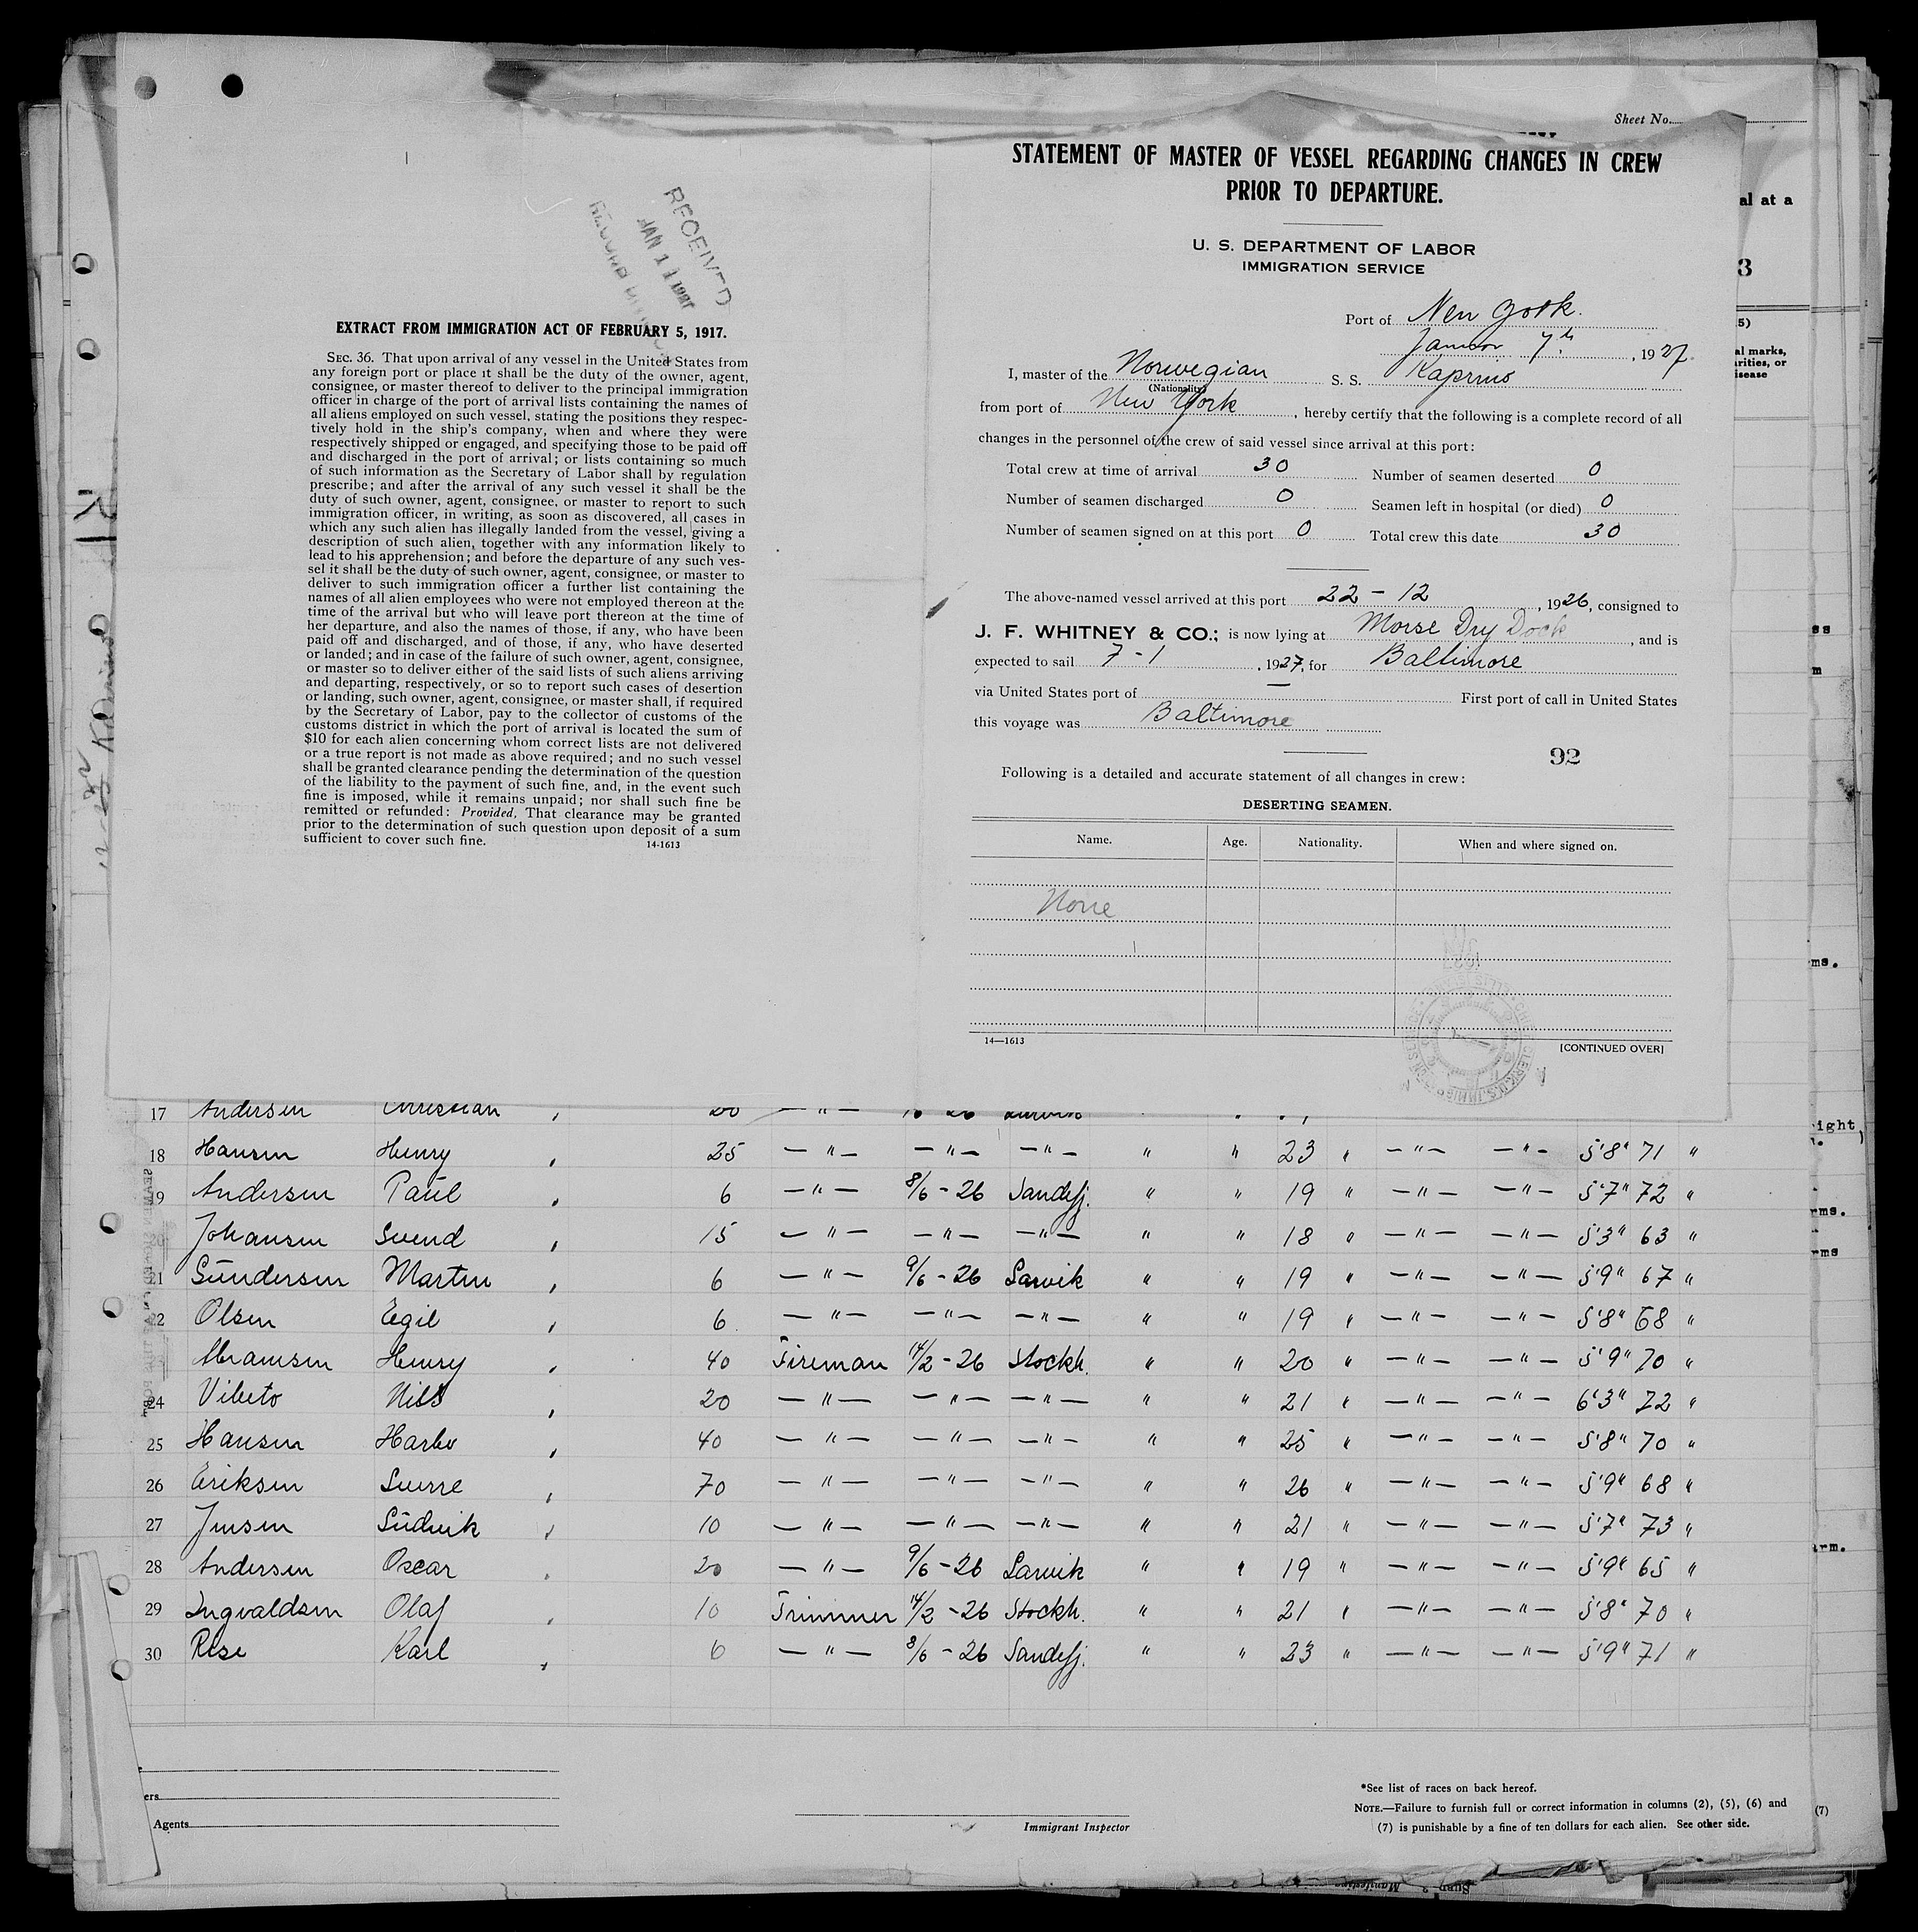 Sheet No.
STATEMENT OF MASTER OF VESSEL REGARDING CHANGES IN CREW
PRIOR TO DEPARTURE.
U. S. DEPARTMENT OF LABOR
IMMIGRATION SERVICE
Port of New York.
7th, 1927.
I, master of the Norwegian S. S.
(Nationality)
from port of New York, hereby certify that the following is a complete record of all
changes in the personnel of the crew of said vessel since arrival at this port:
Total crew at time of arrival 30 Number of seamen deserted 0
Number of seamen discharged 0 Seamen left in hospital (or died) 0
Number of seamen signed on at this port 0 Total crew this date 30
The above-named vessel arrived at this port 22 - 12, 1926, consigned to
J. F. WHITNEY & CO.; is now lying at Morse Dry Dock, and is
expected to sail 7 - 1, 1927, for Baltimore
via United States port of — First port of call in United States
this voyage was Baltimore
92
Following is a detailed and accurate statement of all changes in crew:
DESERTING SEAMEN.
Name. Age. Nationality. When and where signed on.
None
14—1613 [CONTINUED OVER]
RECEIVED
JAN 11 1927
EXTRACT FROM IMMIGRATION ACT OF FEBRUARY 5, 1917.
SEC. 36. That upon arrival of any vessel in the United States from
any foreign port or place it shall be the duty of the owner, agent,
consignee, or master thereof to deliver to the principal immigration
officer in charge of the port of arrival lists containing the names of
all aliens employed on such vessel, stating the positions they respec-
tively hold in the ship's company, when and where they were
respectively shipped or engaged, and specifying those to be paid off
and discharged in the port of arrival; or lists containing so much
of such information as the Secretary of Labor shall by regulation
prescribe; and after the arrival of any such vessel it shall be the
duty of such owner, agent, consignee, or master to report to such
immigration officer, in writing, as soon as discovered, all cases in
which any such alien has illegally landed from the vessel, giving a
description of such alien, together with any information likely to
lead to his apprehension; and before the departure of any such ves-
sel it shall be the duty of such owner, agent, consignee, or master to
deliver to such immigration officer a further list containing the
names of all alien employees who were not employed thereon at the
time of the arrival but who will leave port thereon at the time of
her departure, and also the names of those, if any, who have been
paid off and discharged, and of those, if any, who have deserted
or landed; and in case of the failure of such owner, agent, consignee,
or master so to deliver either of the said lists of such aliens arriving
and departing, respectively, or so to report such cases of desertion
or landing, such owner, agent, consignee, or master shall, if required
by the Secretary of Labor, pay to the collector of customs of the
customs district in which the port of arrival is located the sum of
$10 for each alien concerning whom correct lists are not delivered
or a true report is not made as above required; and no such vessel
shall be granted clearance pending the determination of the question
of the liability to the payment of such fine, and, in the event such
fine is imposed, while it remains unpaid; nor shall such fine be
remitted or refunded: Provided, That clearance may be granted
prior to the determination of such question upon deposit of a sum
sufficient to cover such fine. 14-1613
al at a
3
5)
al marks,
arities, or
isease
17 Andersen Christian
18 Hansen Henry 25 — " — — " — — " — " " 23 " — " — — " — 5'8" 71 "
19 Andersen Paul 6 — " — 8/6 - 26 Sandefj. " " 19 " — " — — " — 5'7" 72 "
20 Johansen Svend 15 — " — — " — — " — " " 18 " — " — — " — 5'3" 63 "
21 Gundersen Martin 6 — " — 9/6 - 26 Larvik " " 19 " — " — — " — 5'9" 67 "
22 Olsen Egil 6 — " — — " — — " — " " 19 " — " — — " — 5'8" 68 "
Abramsen Henry 40 Fireman 14/2 - 26 Stockh. " " 20 " — " — — " — 5'9" 70 "
24 Vibeto Nils 20 — " — — " — — " — " " 21 " — " — — " — 6'3" 72 "
25 Hansen 40 — " — — " — — " — " " 25 " — " — — " — 5'8" 70 "
26 Eriksen Sverre 70 — " — — " — — " — " " 26 " — " — — " — 5'9" 68 "
27 Jensen Ludvik 10 — " — — " — — " — " " 21 " — " — — " — 5'7" 73 "
28 Andersen Oscar 20 — " — 9/6 - 26 Larvik " " 19 " — " — — " — 5'9" 65 "
29 Ingvaldsen Olaf 10 Trimmer 14/2 - 26 Stockh. " " 21 " — " — — " — 5'8" 70 "
30 Rise Karl 6 — " — 8/6 - 26 Sandefj. " " 23 " — " — — " — 5'9" 71 "
ers
Agents
Immigrant Inspector
*See list of races on back hereof.
NOTE.—Failure to furnish full or correct information in columns (2), (5), (6) and
(7) is punishable by a fine of ten dollars for each alien. See other side.
(7)